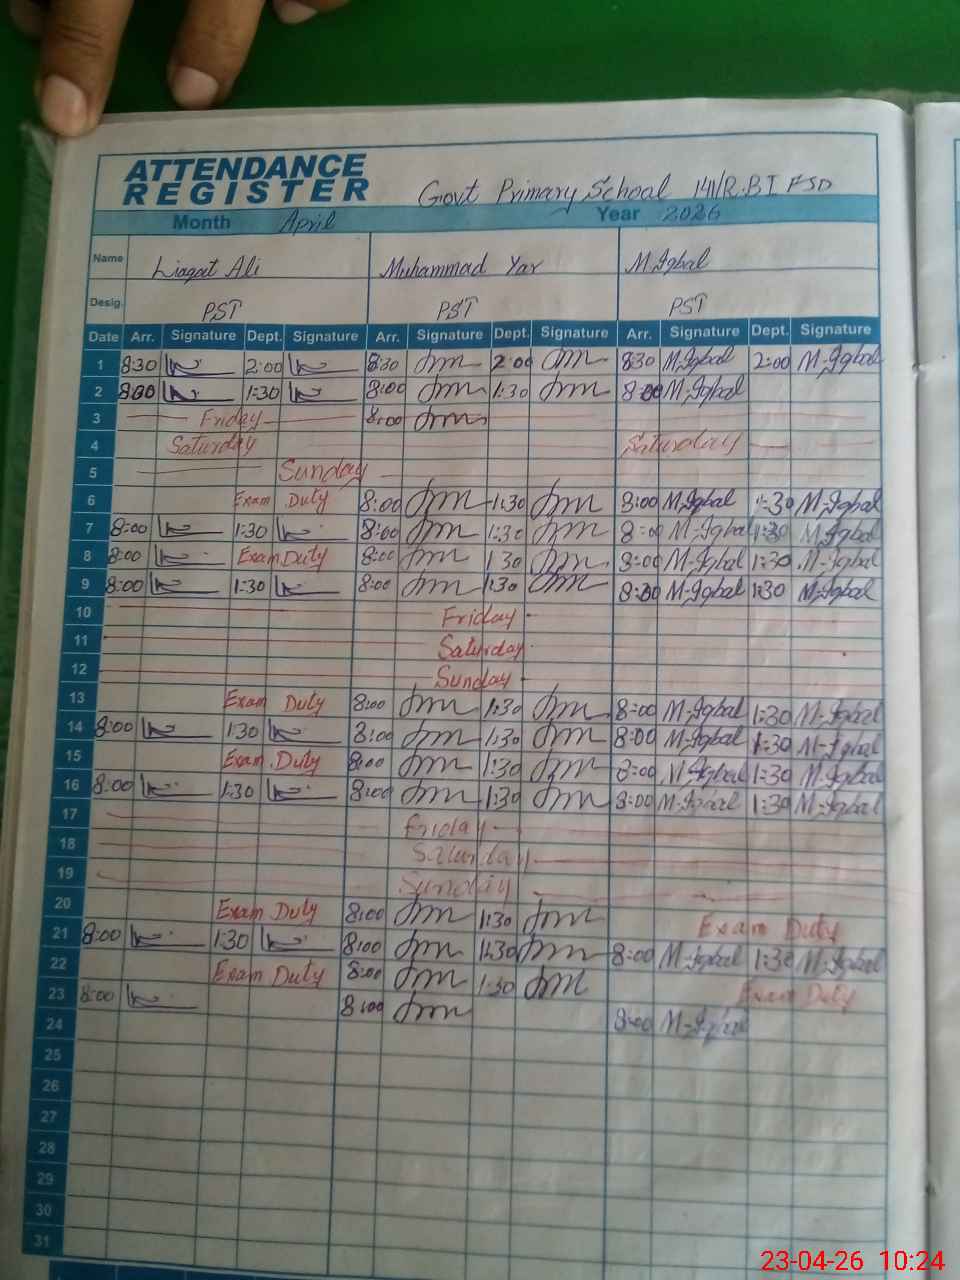 ATTENDANCE
REGISTER
Govt Primary School 141/R.B I FSD
Month April Year 2026
Name Liaqat Ali Muhammad Yar M.Iqbal
Desig. PST PST PST
Date Arr. Signature Dept. Signature Arr. Signature Dept. Signature Arr. Signature Dept. Signature
1 8:30 2:00 8:30 2:00 8:30 M.Iqbal 2:00 M-Iqbal
2 8:00 1:30 8:00 1:30 8:00 M-Iqbal
3 Friday 8:00
4 Saturday Saturday
5 Sunday
6 Exam Duty 8:00 1:30 8:00 M-Iqbal 1:30 M-Iqbal
7 8:00 1:30 8:00 1:30 8:00 M-Iqbal 1:30 M-Iqbal
8 8:00 Exam Duty 8:00 1:30 8:00 M-Iqbal 1:30 M-Iqbal
9 8:00 1:30 8:00 1:30 8:00 M-Iqbal 1:30 M-Iqbal
10 Friday
11 Saturday
12 Sunday
13 Exam Duty 8:00 1:30 8:00 M-Iqbal 1:30 M-Iqbal
14 8:00 1:30 8:00 1:30 8:00 M-Iqbal 1:30 M-Iqbal
15 Exam Duty 8:00 1:30 8:00 M-Iqbal 1:30 M-Iqbal
16 8:00 1:30 8:00 1:30 8:00 M-Iqbal 1:30 M-Iqbal
17 Friday
18 Saturday
19 Sunday
20 Exam Duty 8:00 1:30 Exam Duty
21 8:00 1:30 8:00 1:30 8:00 M-Iqbal 1:30 M-Iqbal
22 Exam Duty 8:00 1:30 Exam Duty
23 8:00 8:00 8:00 M-Iqbal
24
25
26
27
28
29
30
31
23-04-26 10:24